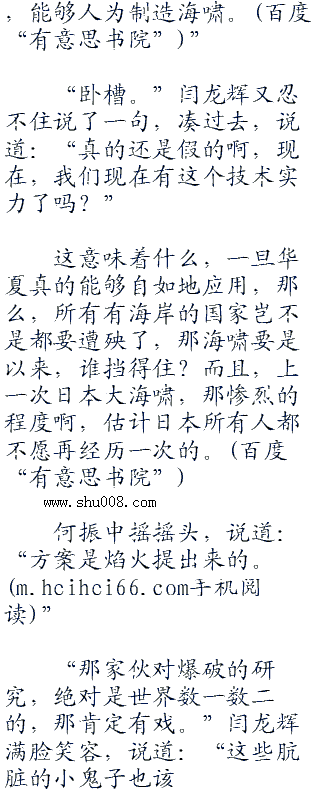 ，能够人为制造海啸。(百度
“有意思书院”)”
“卧槽。”闫龙辉又忍
不住说了一句，凑过去，说
道：“真的还是假的啊，现
在，我们现在有这个技术实
力了吗？”
这意味着什么，一旦华
夏真的能够自如地应用，那
么，所有有海岸的国家岂不
是都要遭殃了，那海啸要是
以来，谁挡得住？而且，上
一次日本大海啸，那惨烈的
程度啊，估计日本所有人都
不愿再经历一次的。(百度
“有意思书院”)
www.shu008.com
何振中摇摇头，说道：
“方案是焰火提出来的。
(m.hcihci66.com手机阅
读)”
“那家伙对爆破的研
究，绝对是世界数一数二
的，那肯定有戏。”闫龙辉
满脸笑容，说道：“这些肮
脏的小鬼子也该